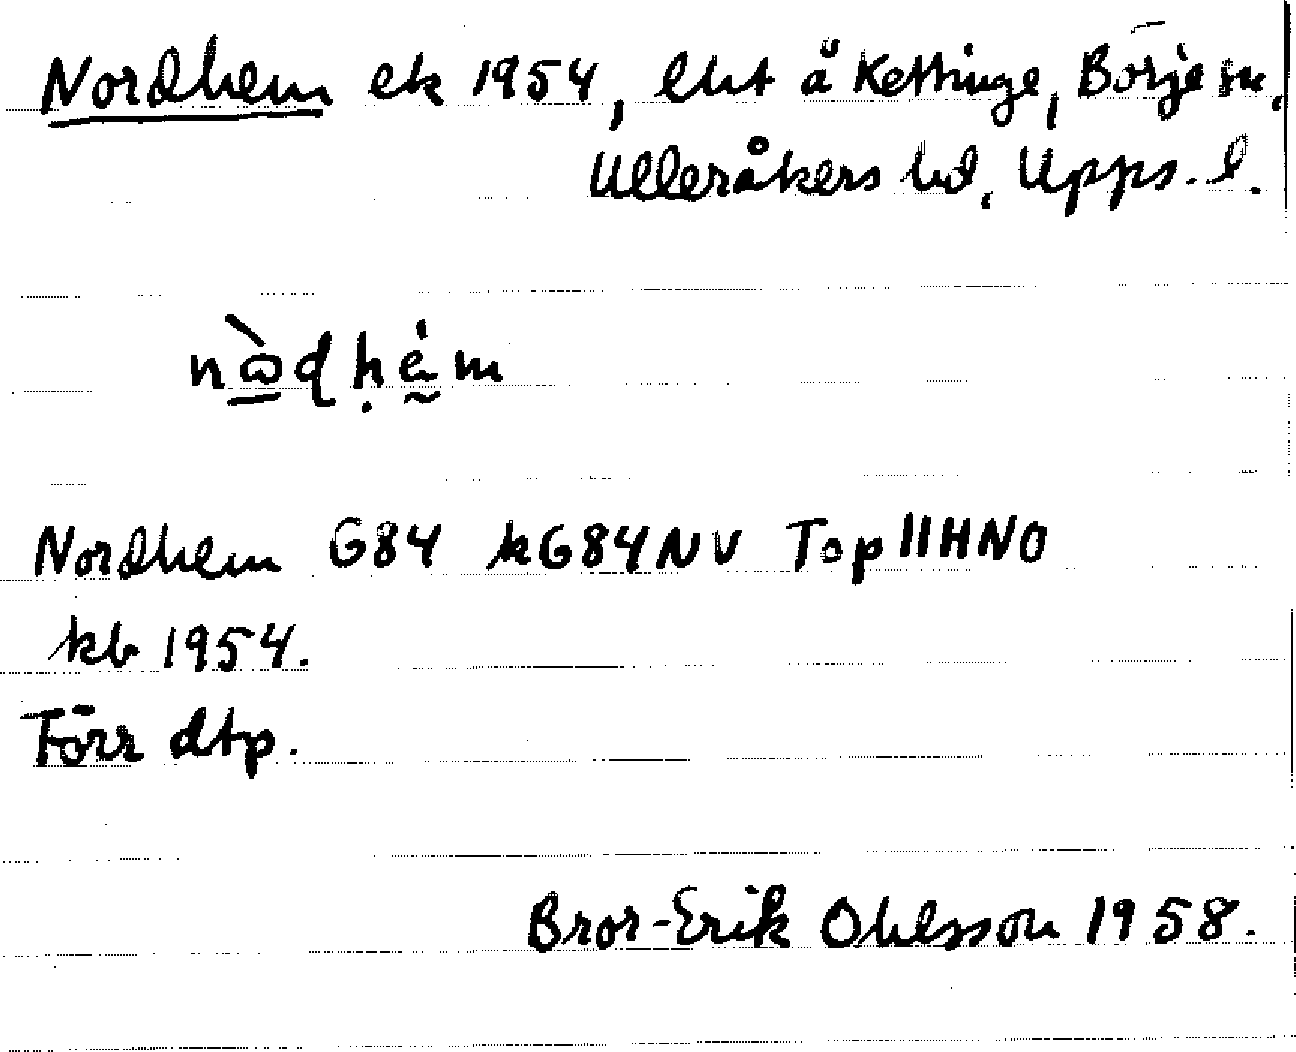 Nordhem ek 1954, lht å Kettinge, Börje sn,
Ulleråkers hd, Upps. l.
Nordhem G84 kG84NV Top11HNO
kb 1954.
Förr dtp.
Bror-Erik Ohlsson 1958.